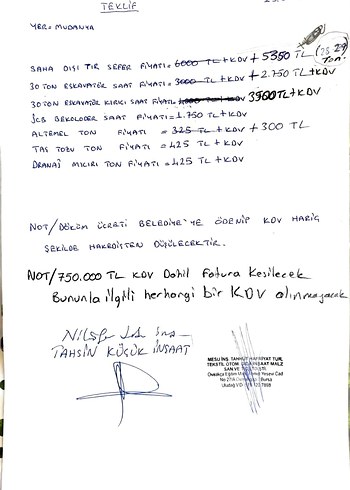 TEKLİF
YER= MUDANYA
SAHA DIŞI TIR SEFER FİYATI= 6000 TL + KDV + 5350 TL (28-29 Ton.)
30 TON ESKAVATÖR SAAT FİYATI= 3000 TL + KDV + 2.750 TL+KDV
30 TON ESKAVATÖR KIRICI SAAT FİYATI= KDV 3900TL+KDV
JCB BEKOLODER SAAT FİYATI= 1.750 TL + KDV
ALTEMEL TON FİYATI = 325 TL + KDV + 300 TL
TAŞ TOZU TON FİYATI = 425 TL + KDV
DRANAJ MICIRI TON FİYATI = 425 TL + KDV
NOT/ DÖKÜM ÜCRETİ BELEDİYE'YE ÖDENİP KDV HARİÇ
ŞEKİLDE HAKEDİŞTEN DÜŞÜLECEKTİR.
NOT/ 750.000 TL KDV Dahil Fatura Kesilecek
Bununla ilgili herhangi bir KDV alınmayacak
TAHSİN KÜÇÜK İNŞAAT
MESU İNŞ. TAAHHÜT HAFRİYAT TUR.
Bursa